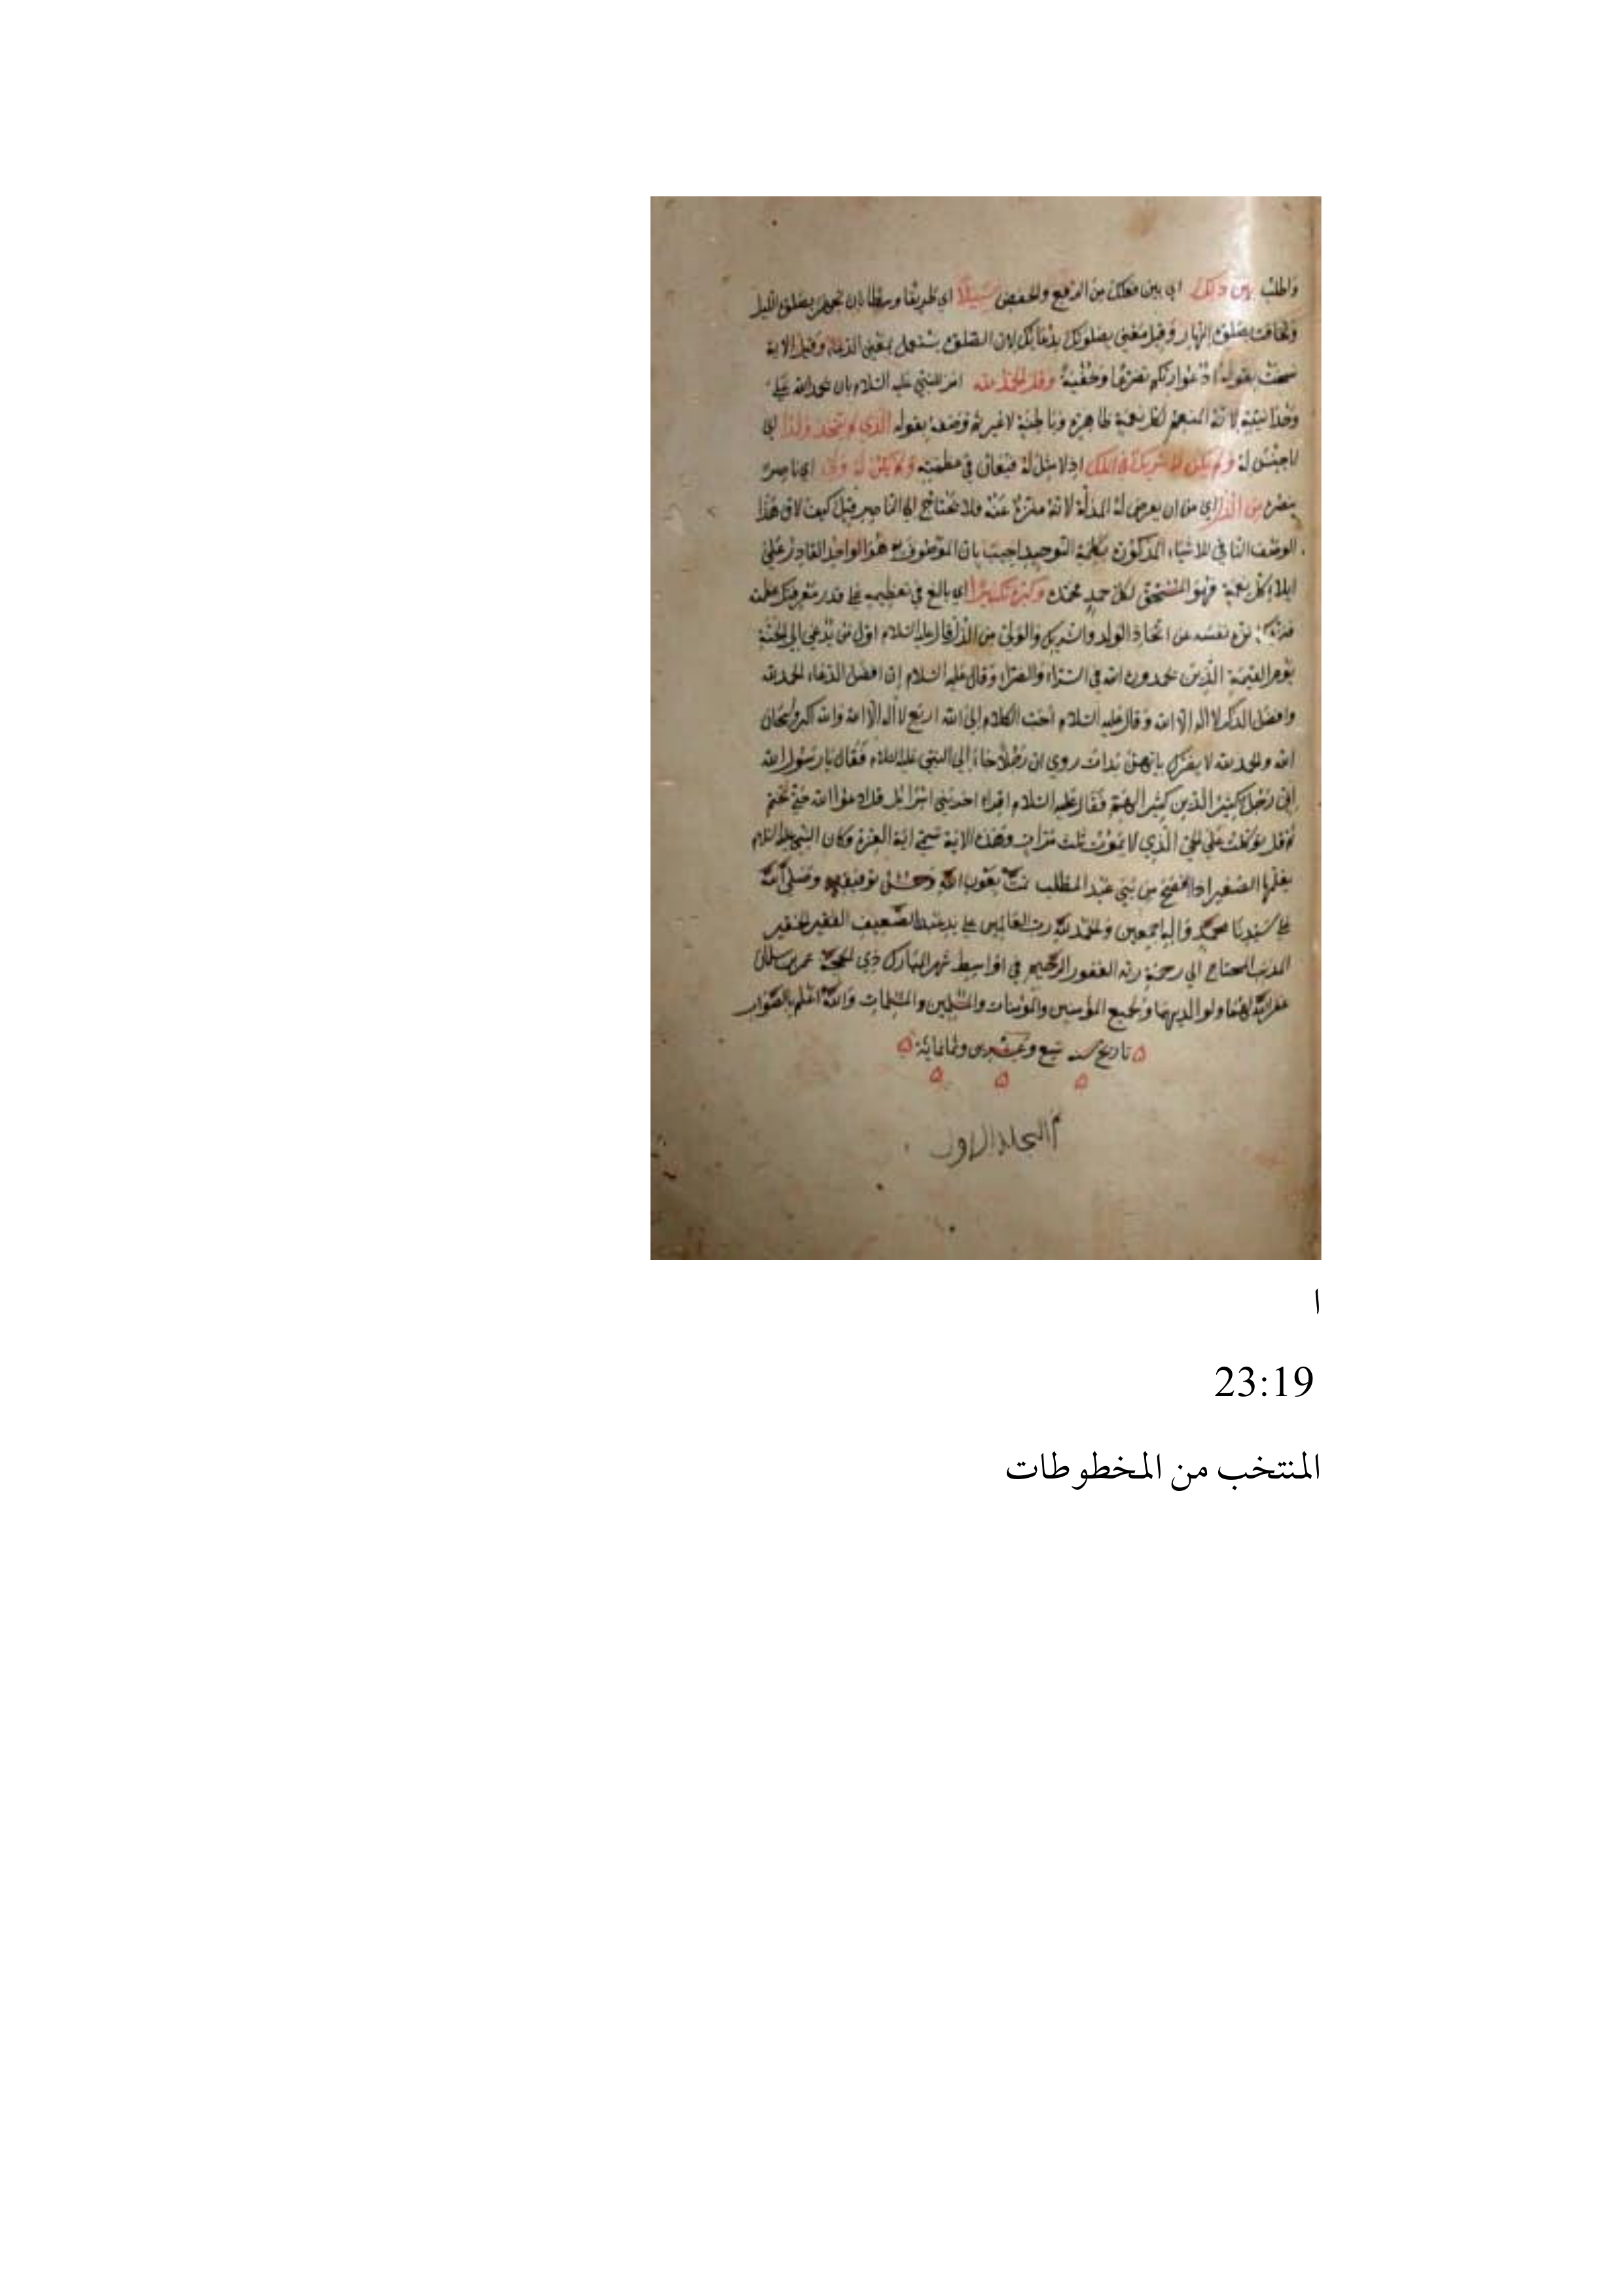 واطلب بين ذلك اي بين فعلك من الرفع والخفض سبيلا اي طريقا وسطا بان تجهر بصلوة الليل
وتخافت بصلوة النهار وقيل معنى بصلوتك بدعائك لان الصلوة يستعمل بمعنى الدعاء وقيل الاية
نسخت بقوله ادعوا ربكم تضرعا وخفية وقل الحمد لله امر للنبي عليه السلام بان يحمد الله على
وحدانيته لانه المنعم لكل نعمة ظاهرة وباطنة لاغيره ثم وصفه بقوله الذي لم يتخذ ولدا اي
لا جنس له ولم يكن له شريك في الملك اذ لا مثل له في عظمته ولم يكن له ولي اي ناصر
ينصره من الذل اي من ان يعرض له المذلة لانه منزه عنه فلا يحتاج الى الناصر قيل كيف لاق هذا
الوصف النافي للاشياء المذكورة بكلمة التوحيد اجيب بان الموصوف به هو الواحد القادر على
ايلاء كل نعمة فهو المستحق لكل حمد وكبره تكبيرا اي بالغ في تعظيمه على قدر معرفتك
نزه نفسه عن اتخاذ الولد والشريك والولي من الذل قال عليه السلام اول من يدعى الى الجنة
يوم القيمة الذين يحمدون الله في السراء والضراء وقال عليه السلام إن افضل الدعاء الحمد لله
وافضل الذكر لا اله الا الله وقال عليه السلام احب الكلام إلى الله اربع لا اله الا الله والله اكبر وسبحان
الله والحمد لله لا يضرك بايهن بدات روى ان رجلا جاء إلى النبي عليه السلام فقال يا رسول الله
إني رجل كثير الدين كثير الهم فقال عليه السلام اقراء اخر بني اسرائيل قل ادعوا الله حتى تختم
ثم قل توكلت على الحي الذي لا يموت ثلث مرات وهذه الاية تسمى اية العزة وكان النبي عليه السلام
يعلمها الصغير اذا افصح من بني عبد المطلب تمت بعون الله وحسن توفيقه وصلى الله
على سيدنا محمد واله اجمعين والحمد لله رب العالمين على يد عبد الضعيف الفقير الحقير
المذنب المحتاج الى رحمة ربه الغفور الرحيم في اواسط شهر المبارك ذي الحجة عمر بن سلمان
غفر الله لهما ولوالديهما ولجميع المؤمنين والمؤمنات والمسلمين والمسلمات والله اعلم بالصواب
تاريخ سنه وعشرين وثمانمائة
المجلد الاول
ا
23:19
المنتخب من المخطوطات